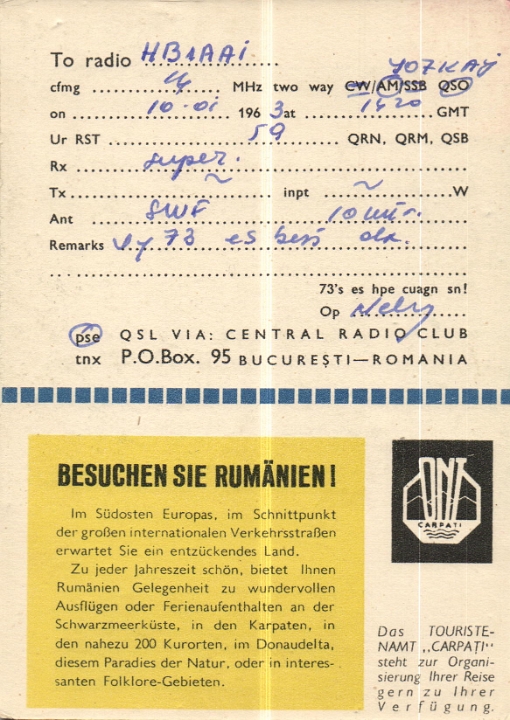 To radio HB1AAi
YO7KAJ
cfmg 14 MHz two way CW/AM/SSB QSO
on 10-01 1963 at 1420 GMT
Ur RST 59 QRN, QRM, QSB
Rx super.
Tx ~ inpt ~ W
Ant SWF 10 mtr.
Remarks Vy 73 es best dx.
73's es hpe cuagn sn!
Op Nelly
pse QSL VIA: CENTRAL RADIO CLUB
tnx P.O.Box. 95 BUCUREȘTI—ROMANIA
BESUCHEN SIE RUMÄNIEN!
Im Südosten Europas, im Schnittpunkt
der großen internationalen Verkehrsstraßen
erwartet Sie ein entzückendes Land.
Zu jeder Jahreszeit schön, bietet Ihnen
Rumänien Gelegenheit zu wundervollen
Ausflügen oder Ferienaufenthalten an der
Schwarzmeerküste, in den Karpaten, in
den nahezu 200 Kurorten, im Donaudelta,
diesem Paradies der Natur, oder in interes-
santen Folklore-Gebieten.
ONT
CARPAȚI
Das TOURISTE-
NAMT „CARPAȚI"
steht zur Organi-
sierung Ihrer Reise
gern zu Ihrer
Verfügung.